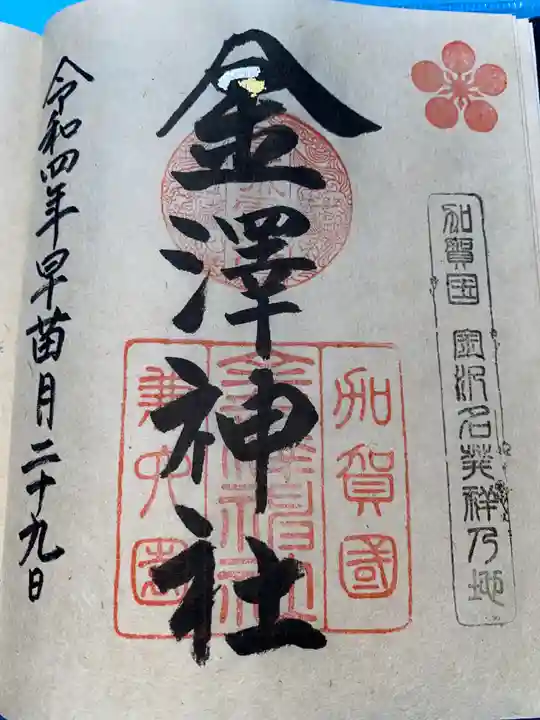 加賀国 金沢名発祥乃地
金澤神社
加賀國
金澤神社
兼六園
令和四年早苗月二十九日